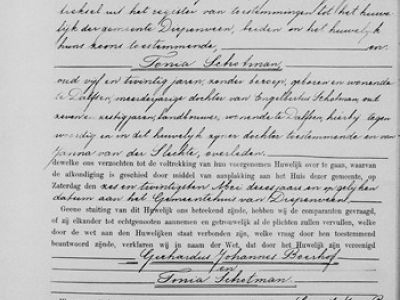 treksel uit het register van toestemmingen tot het huwe-
lijk der gemeente Diepenveen, beiden en het huwelijk
huns zoons toestemmende, en
Tonia Schotman,
oud vijf en twintig jaren, zonder beroep, geboren en wonende
te Dalfsen, meerderjarige dochter van Engelbertus Schotman, oud
zeven en zestig jaren, landbouwer, wonende te Dalfsen, hierbij tegen
woordig en in dit huwelijk zijner dochter toestemmende en van
Janna van der Slechte, overleden.
dewelke ons verzochten tot de voltrekking van hun voorgenomen Huwelijk over te gaan, waarvan
de afkondiging is geschied door middel van aanplakking aan het Huis dezer gemeente, op
Zaterdag den zes en twintigsten Mei dezes jaars en op gelijken
datum aan het Gemeentehuis van Diepenveen.
Geene stuiting van dit Huwelijk ons beteekend zijnde, hebben wij de comparanten gevraagd,
of zij elkander tot echtgenooten aannemen en getrouwelijk al de plichten zullen vervullen, welke
door de wet aan den Huwelijken staat verbonden zijn, welke vraag door hen toestemmend
beantwoord zijnde, verklaren wij in naam der Wet, dat door het Huwelijk zijn vereenigd
Gerhardus Johannes Boerhof
en
Tonia Schotman.